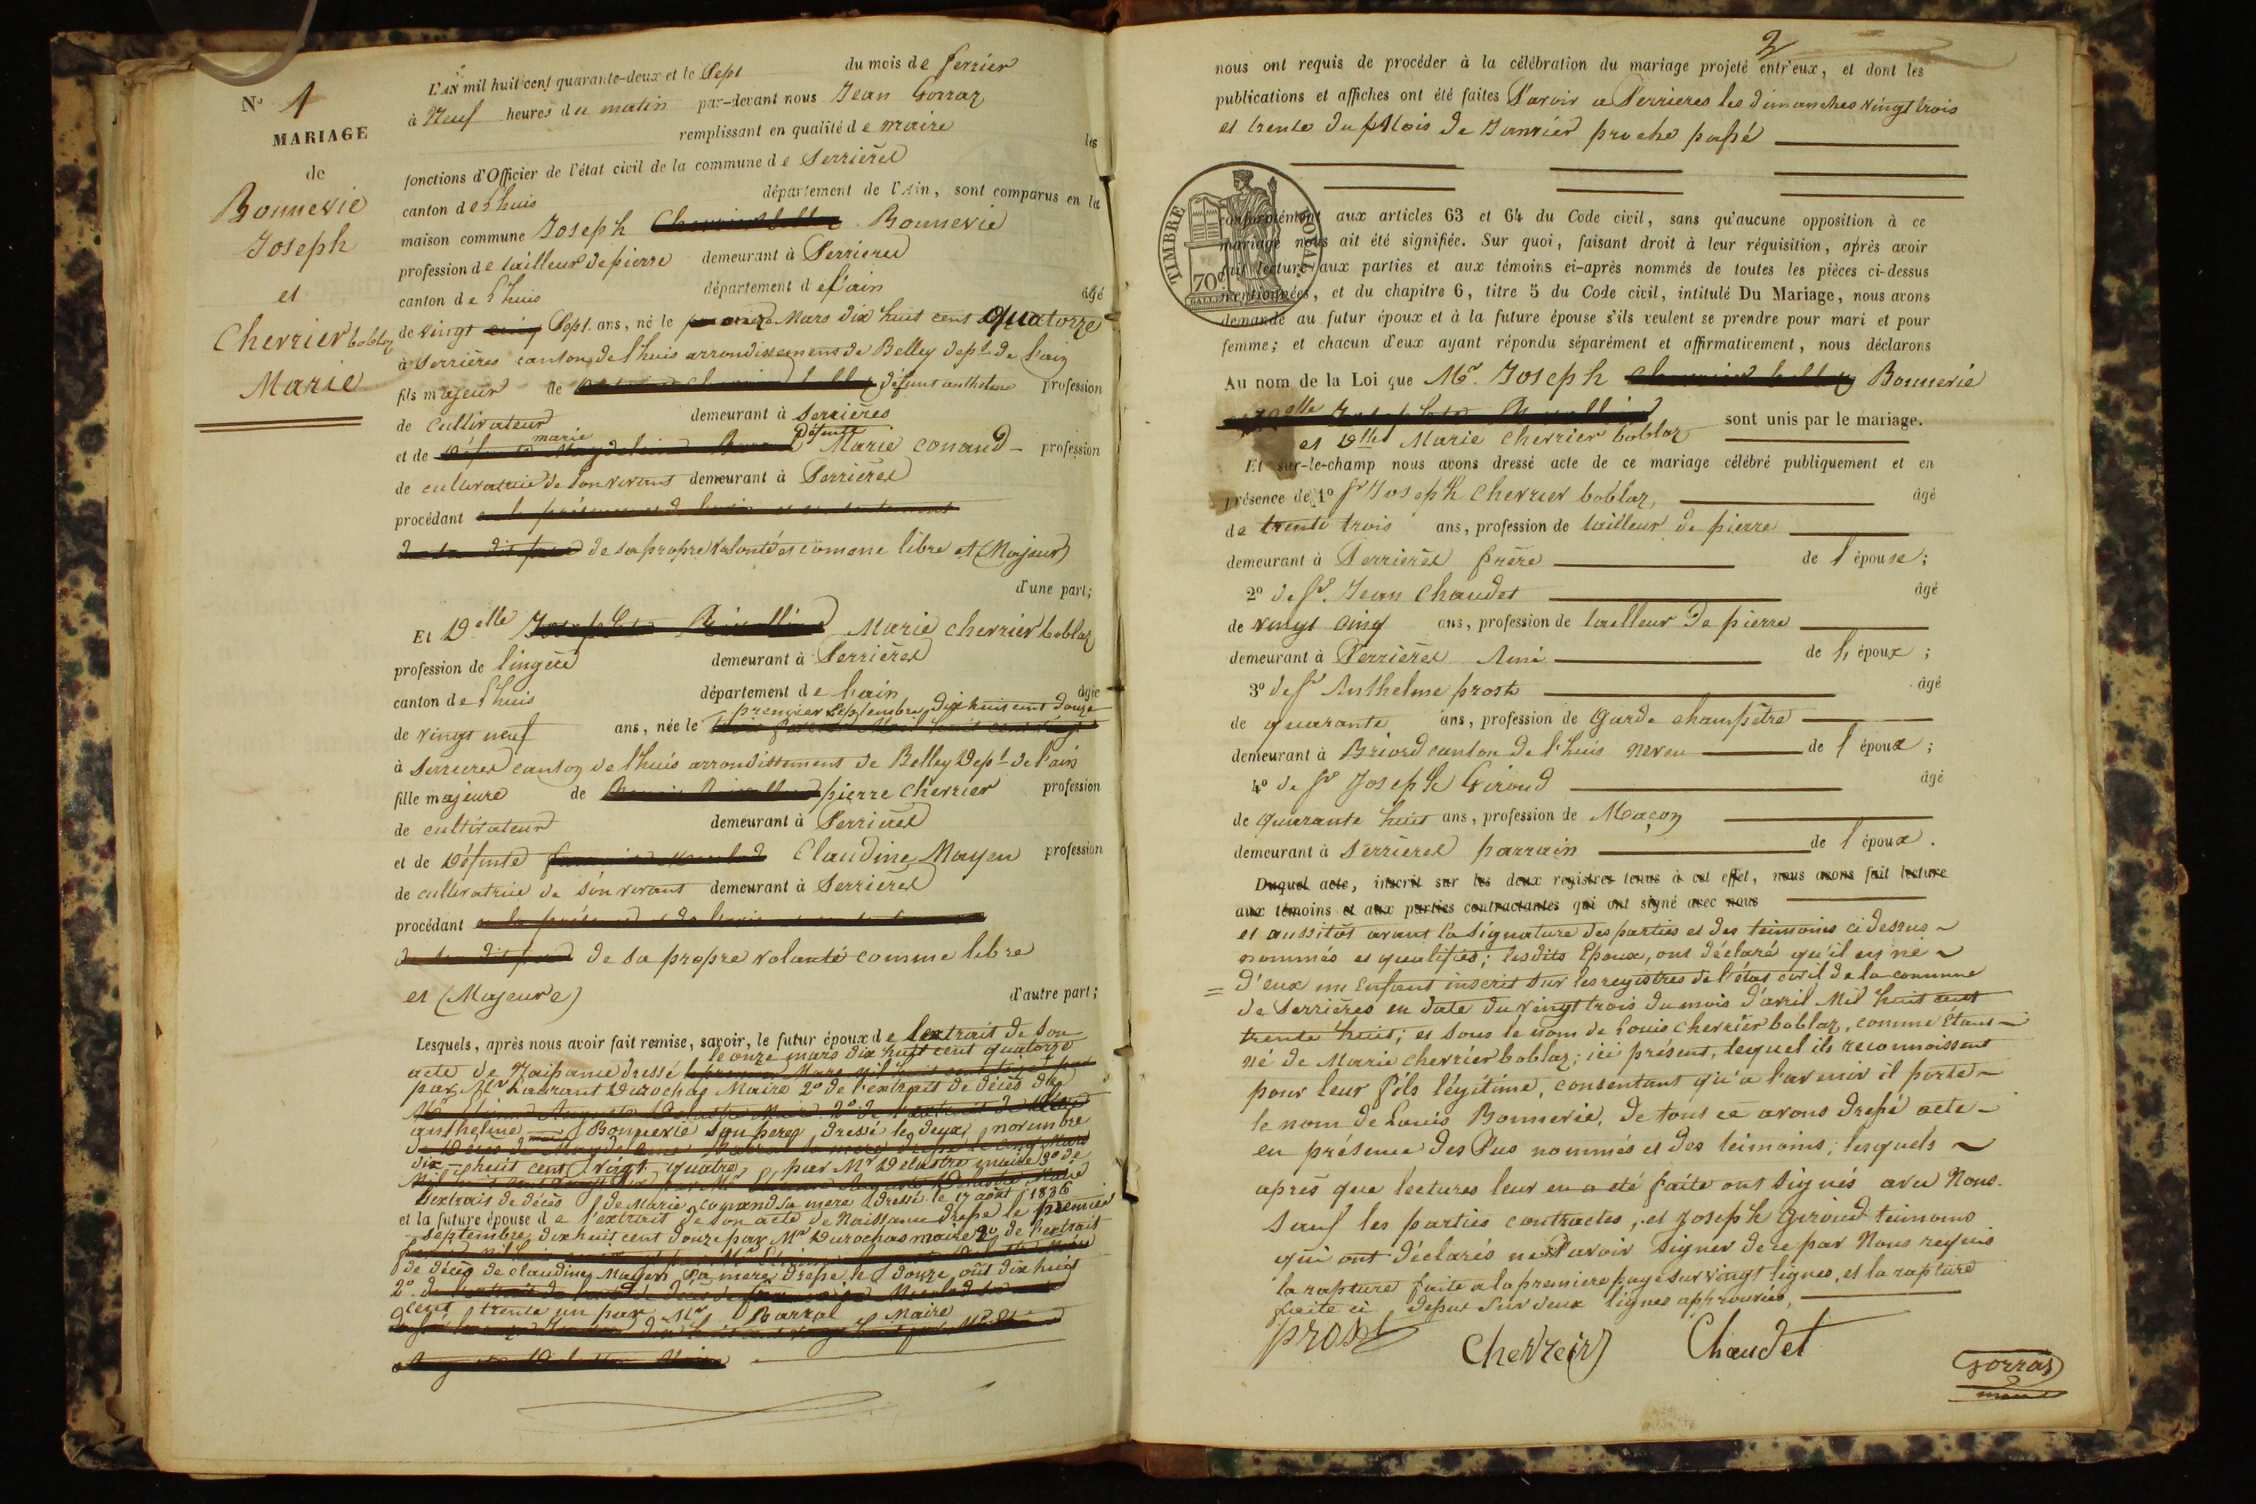 N.° 1
MARIAGE
de
Bonnevie
Joseph
et
Cherrier boblaz
Marie
L'AN mil huit cent quarante-deux et le Sept du mois de ferrier
à Neuf heures du matin par-devant nous Jean Gorraz
remplissant en qualité de maire les
fonctions d'Officier de l'état civil de la commune de Serrières
canton de Lhuis département de l'Ain, sont comparus en la
maison commune Joseph Bonnevie
profession de tailleur de pierre demeurant à Serrieres
canton de Lhuis département de l'ain âgé
de vingt Sept ans, né le onze Mars dix huit cent quatorze
à Serrières canton de l'huis arrondissement de Belley Dept de l'ain
fils majeur de défunt anthelme profession
de cultivateur demeurant à Serrières
et de Défunte Marie conand profession
de cultivatrice de son vivant demeurant à Serrières
procédant
de sa propre volonté et comme libre et (Majeur)
d'une part;
Et Delle Marie cherrier boblaz
profession de lingère demeurant à Serrières
canton de Lhuis département de l'ain âgée
premier Septembre dix huit cent douze
de vingt neuf ans, née le
à Serrieres canton de l'huis arrondissement de Belley Dept de l'ain
fille majeure de pierre Cherrier profession
de cultivateur demeurant à Serrieres
et de Défunte Claudine Mayen profession
de cultivatrice de son vivant demeurant à Serrières
procédant
de sa propre volonté comme libre
et (Majeure) d'autre part;
Lesquels, après nous avoir fait remise, savoir, le futur époux de l'extrait de son
le onze mars dix huit cent quatorze
acte de Naissance dressé
par Mr Laurant Durochas Maire 2° de l'extrait de décès de
anthelme Bonnevie son pere dressé le deux novembre
dix huit cent vingt quatre par Mr Delastre maire 3° de
l'extrait de décès de Marie conand Sa mere dressé le 17 août 1836
et la future épouse de l'extrait de son acte de Naissance dressé le premier
septembre dix huit cent douze par Mr Durochas maire 2° de l'extrait
de décès de claudine Mayen sa mere dressé le douze oût dix huit
cent trente un par Mr Barral Maire
2
nous ont requis de procéder à la célébration du mariage projeté entr'eux, et dont les
publications et affiches ont été faites Savoir a Serrieres les dimanches vingt trois
et trente du Mois de Janvier proche passé
TIMBRE ROYAL
70c
conformément aux articles 63 et 64 du Code civil, sans qu'aucune opposition à ce
mariage nous ait été signifiée. Sur quoi, faisant droit à leur réquisition, après avoir
fait lecture aux parties et aux témoins ci-après nommés de toutes les pièces ci-dessus
mentionnées, et du chapitre 6, titre 5 du Code civil, intitulé Du Mariage, nous avons
demandé au futur époux et à la future épouse s'ils veulent se prendre pour mari et pour
femme; et chacun d'eux ayant répondu séparément et affirmativement, nous déclarons
Au nom de la Loi que Mr. Joseph Bonnevie
et Dlle Marie cherrier boblaz sont unis par le mariage.
Et sur-le-champ nous avons dressé acte de ce mariage célébré publiquement et en
présence de 1° Sr Joseph cherrier boblaz, âgé
de trente trois ans, profession de tailleur de pierre
demeurant à Serrières frère de l'épouse;
2° de Sr. Jean Chaudet âgé
de vingt cinq ans, profession de tailleur de pierre
demeurant à Serrières Ami de l'époux;
3° de Sr Anthelme prost âgé
de quarante ans, profession de Garde champêtre
demeurant à Briord canton de l'huis neveu de l'époux;
4° de Sr Joseph Giroud âgé
de quarante huit ans, profession de Maçon
demeurant à Serrieres parrain de l'époux.
Duquel acte, inscrit sur les deux registres tenus à cet effet, nous avons fait lecture
aux témoins et aux parties contractantes qui ont signé avec nous
et aussitôt avant la signature des parties et des teimoins ci dessus
nommés et qualifiés; lesdits Epoux, ont déclaré qu'il est né
d'eux un Enfant inscrit sur les registres de l'état civil de la commune
de Serrières en date du vingt trois du mois d'avril Mil huit cent
trente huit; et sous le nom de Louis cherrier boblaz, comme étant
né de Marie cherrier boblaz; ici présent, lequel ils reconnoissent
pour leur fils légitime, consentant qu'a l'avenir il porte
le nom de Louis Bonnevie, de tout ce avons dressé acte
en présence des Sus nommés et des teimoins; lesquels
après que lectures leur en a été faite ont signés avec Nous.
Sauf les parties contractes, et Joseph giroud teimoins
qui ont déclarés ne Savoir signer de ce par Nous requis
la rapture faite a la premiere page sur vingt lignes, et la rapture
faite ci dessus sur deux lignes approuvées,
prost
Cherreir
Chaudet
Gorraz
maire